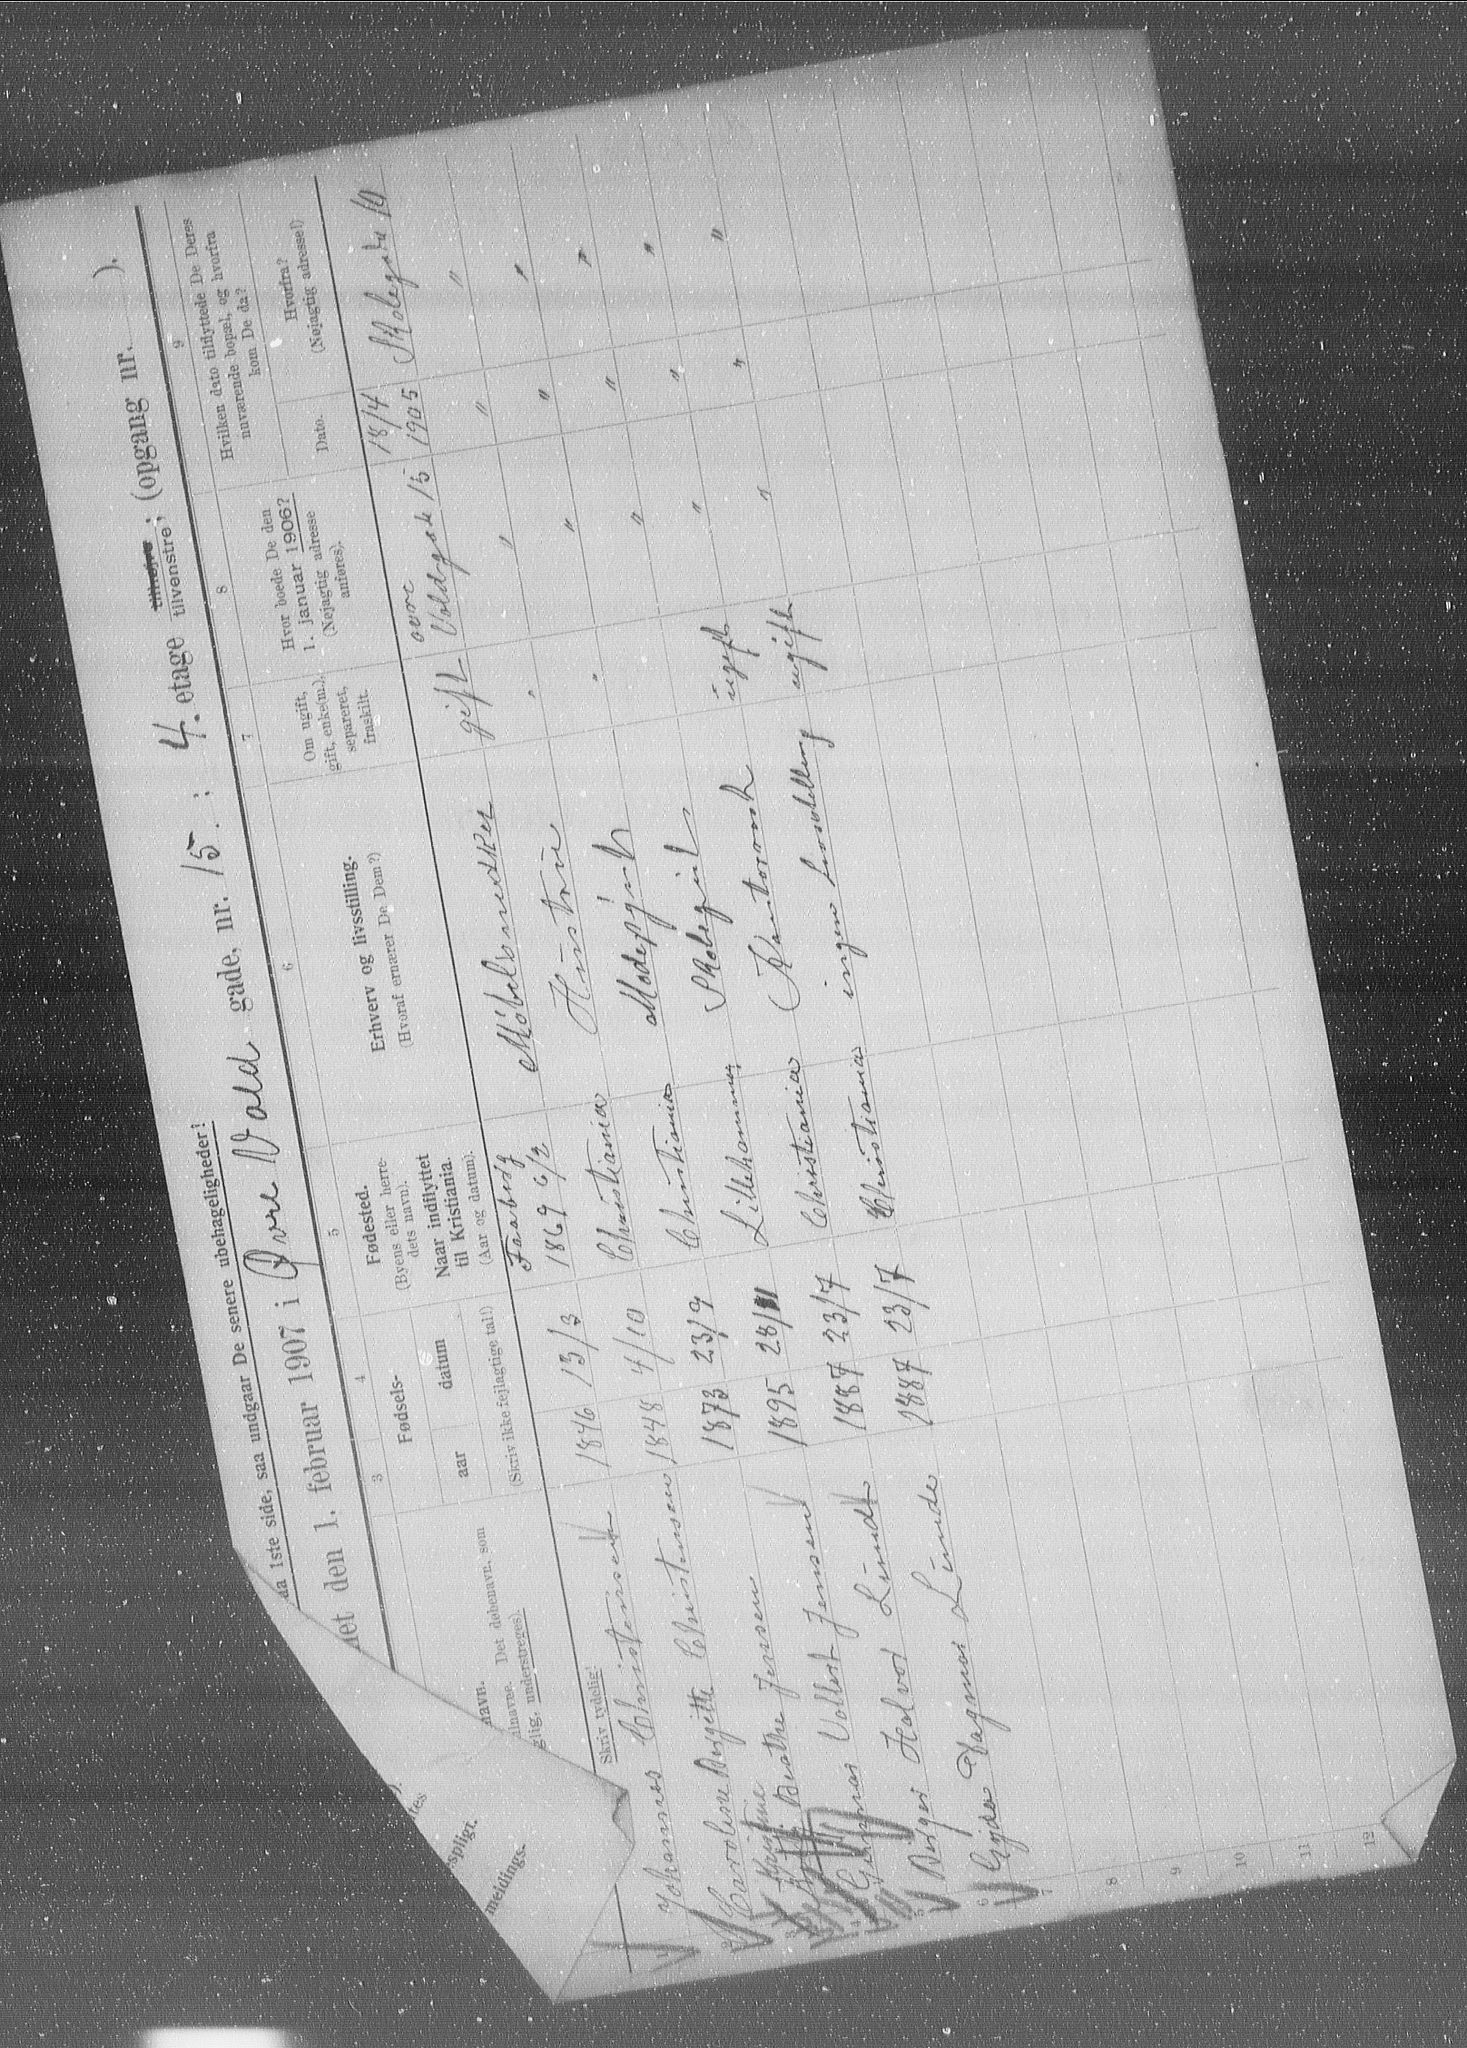 da 1ste side, saa undgaar De senere ubehageligheder!
det den 1. februar 1907 i Øvre Vold gade, nr. 15. ; 4. etage tilhøjre tilvenstre; (opgang nr. ).
3 4 5 6 7 8 9
navn. Det døbenavn, som
lnavne.
glig, understreges).
Skriv tydelig!
Fødsels-
aar
datum
(Skriv ikke fejlagtige tal!)
Fødested.
(Byens eller herre-
dets navn).
Naar indflyttet
til Kristiania.
(Aar og datum).
Erhverv og livsstilling.
(Hvoraf ernærer De Dem?)
Om ugift,
gift, enke(m.),
separeret,
fraskilt.
Hvor boede De den
1. januar 1906?
(Nøjagtig adresse
anføres).
Hvilken dato tilflyttede De Deres
nuværende bopæl, og hvorfra
kom De da?
Dato.
Hvorfra?
(Nøjagtig adresse!)
1 Johannes Christensen 1846 13/3 Faaberg 1869 6/3 Möbelsnedker gift øvre Voldgade 15 18/4 1905 Skolegata 10
2 Caroline Birgitte Christensen 1848 4/10 Christiania Hustru " " " "
3 Beathe Jensen 1873 23/9 Christiania " " " "
4 Gunnar Volbert Jensen 1895 Lillehammer " " "
5 Birger Halvor Lunde 1887 23/7 Christiania ugift " " "
6 Gyda Dagmar Lunde 1887 23/7 Christiania ingen livsstilling ugift " " "
7
8
9
10
11
12
).
tes
spligt.
meldings.